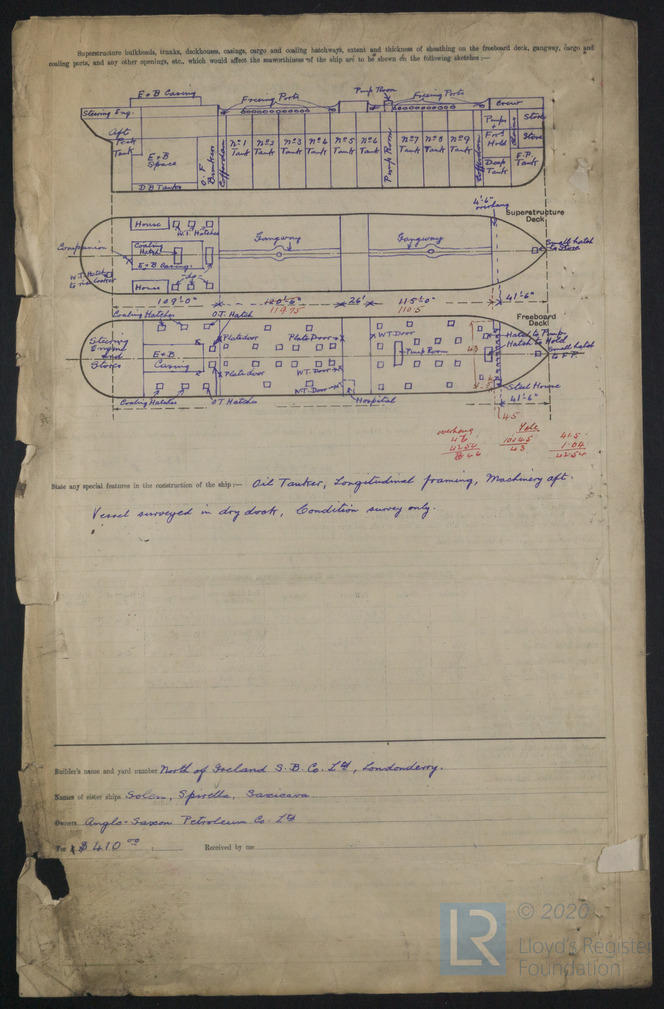 Superstructure bulkheads, trunks, deckhouses, casings, cargo and coaling hatchways, extent and thickness of sheathing on the freeboard deck, gangway, cargo and
coaling ports, and any other openings, etc., which would affect the seaworthiness of the ship are to be shown on the following sketches:—
E+B Casing
Freeing Ports
Pump Room
Freeing Ports
Crew
Steering Eng.
Store
Aft Peak Tank
E+B Space
Cofferdam
No 1 Tank
No 2 Tank
No 3 Tank
No 4 Tank
No 5 Tank
No 6 Tank
Pump Room
No 7 Tank
No 8 Tank
No 9 Tank
Cofferdam
Pumps + For'd Hold
Deep Tank
Chains
Store
F.P. Tank
D.B. Tanks
4'-6" overhang
Superstructure Deck
House
W.T. Hatches
Companion
Coaling Hatch
E+B Casing
Gangway
Gangway
Small hatch to Store
House
109'-0"
120'-6"
26'
115'-0"
41'-6"
119.75
110.5
Coaling Hatches
O.T. Hatch
Freeboard Deck
Steering Engine and Stores
E+B Casing
Plate door
Plate Door
W.T. Door
Pump Room
Hatch to Pumps
Hatch to Hold
Small hatch to F.P.
Plate door
W.T. Door
W.T. Door
Coaling Hatches
O.T. Hatches
Hospital
Steel House
41'-6"
4.5
overhang
43
41.5
1.04
42.54
State any special features in the construction of the ship:— Oil Tanker, Longitudinal framing, Machinery aft.
Vessel surveyed in dry dock, Condition survey only.
Builder's name and yard number North of Ireland S.B. Co. Ltd, Londonderry.
Names of sister ships Solen, Spirella, Saxicava
Owners Anglo-Saxon Petroleum Co. Ltd
Fee $410 00
Received by me
LR
© 2020
Lloyd's Register
Foundation